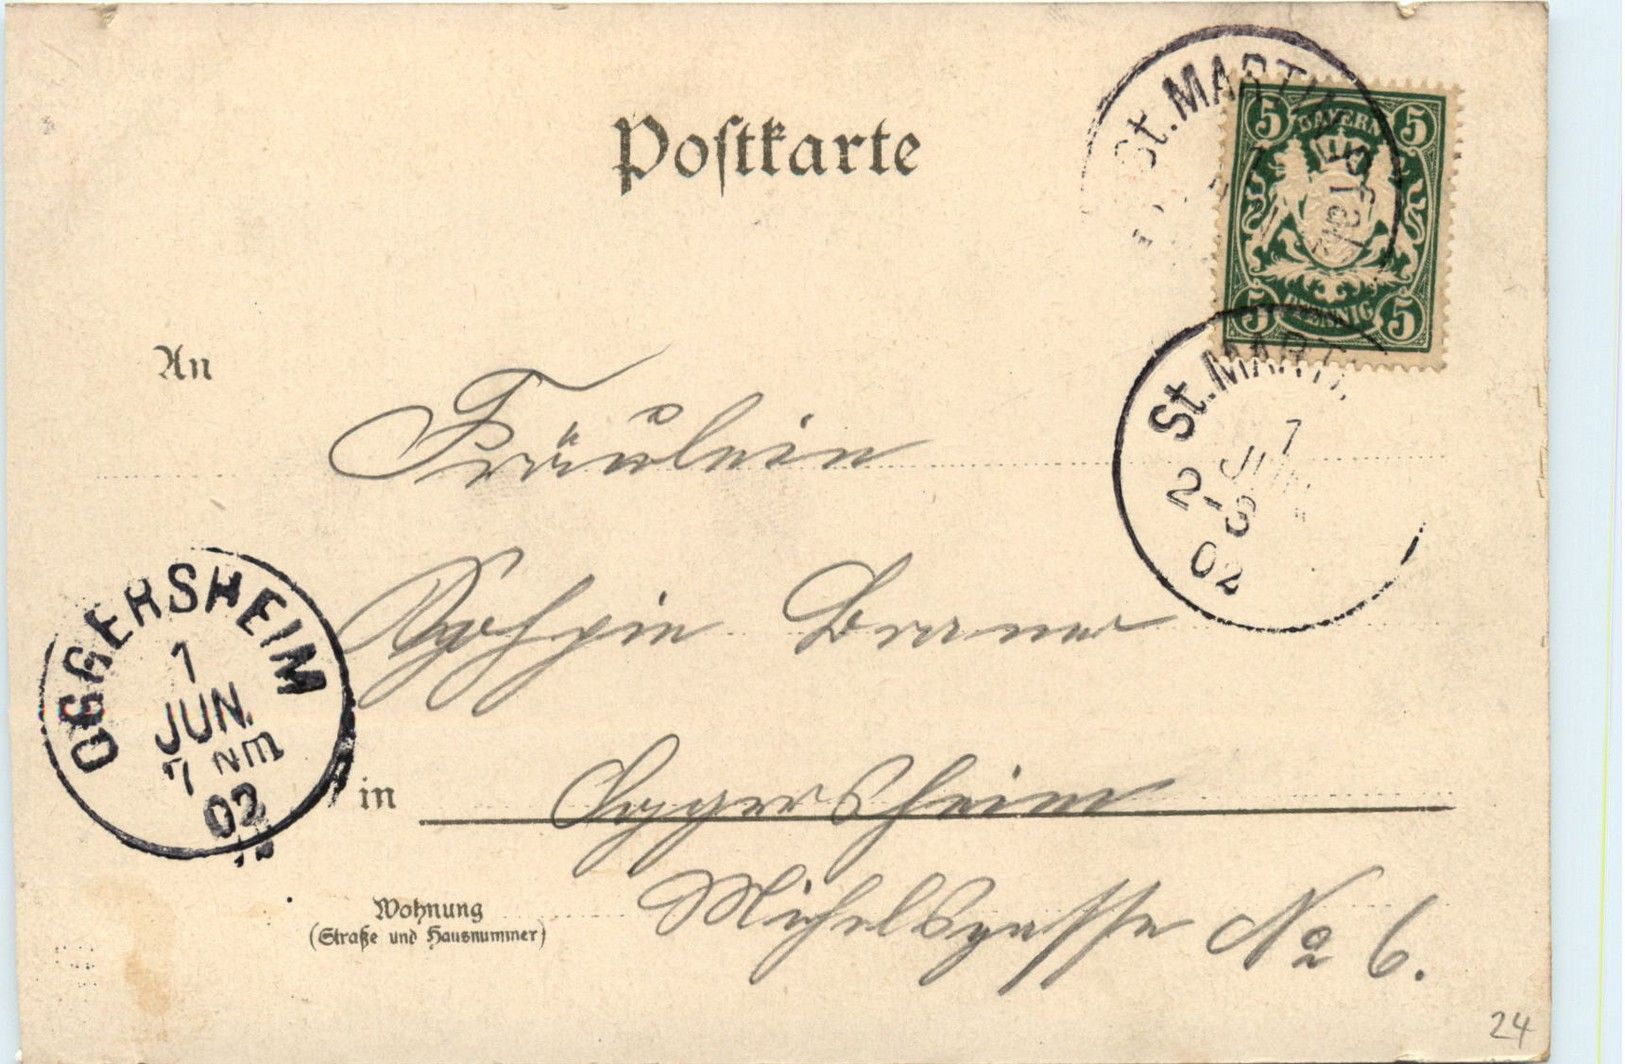 Postkarte
St. MARTIN
5 BAYERN 5
5 PFENNIG 5
St. MARTI
1
JUN.
2-3
02
An
Fräulein
Sophie Braner
OGGERSHEIM
1
JUN.
7 NM
02
in Oggersheim
Michelsgasse No 6.
Wohnung
(Straße und Hausnummer)
24